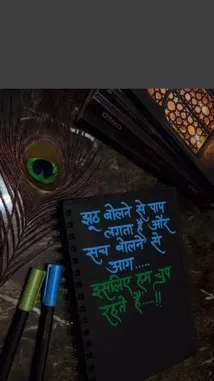 झूठ बोलने से पाप
लगता है और
सच बोलने से
आग.....
इसलिए हम चुप
रहते हैं....!!